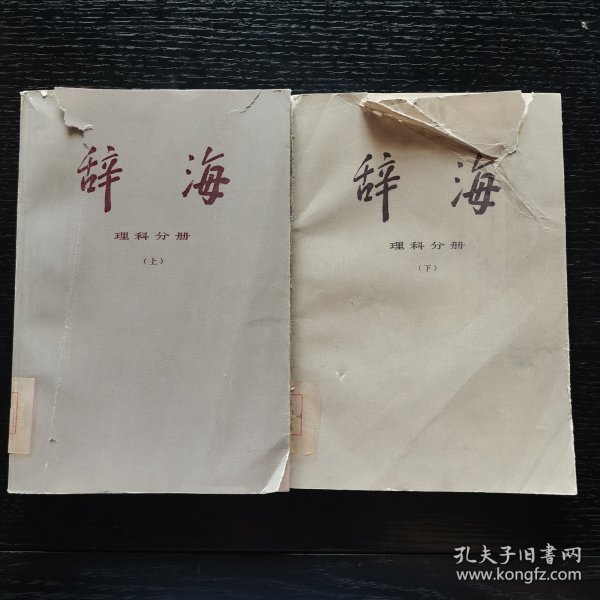 辞海
理科分册
（上）
辞海
理科分册
（下）
孔夫子旧書网
www.kongfz.com